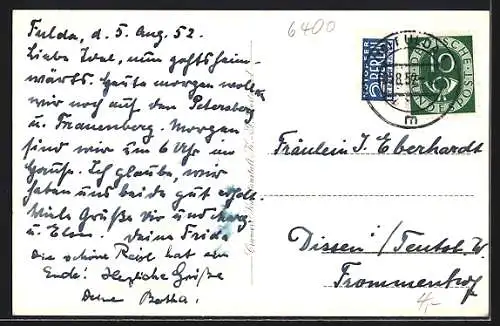 Fulda, d. 5. Aug. 52.
Liebe Isel, nun gehts heim-
wärts. Heute morgen wollen
wir noch auf den Petersberg
u. Frauenberg. Morgen
sind wir um 6 Uhr im
Hause. Ich glaube, wir
haben uns beide gut erholt.
Viele Grüße dir und
u. Elsn. Deine Frida
Die schöne Reise hat ein
Ende! Herzliche Grüße
Deine Betha.
6400
NOTOPFER
2 BERLIN
STEUERMARKE
FULDA
8.52
DEUTSCHE POST
10
BUNDESPOST
Fräulein I. Eberhardt
Dissen / Teutob. W.
Frommenhof
4,-